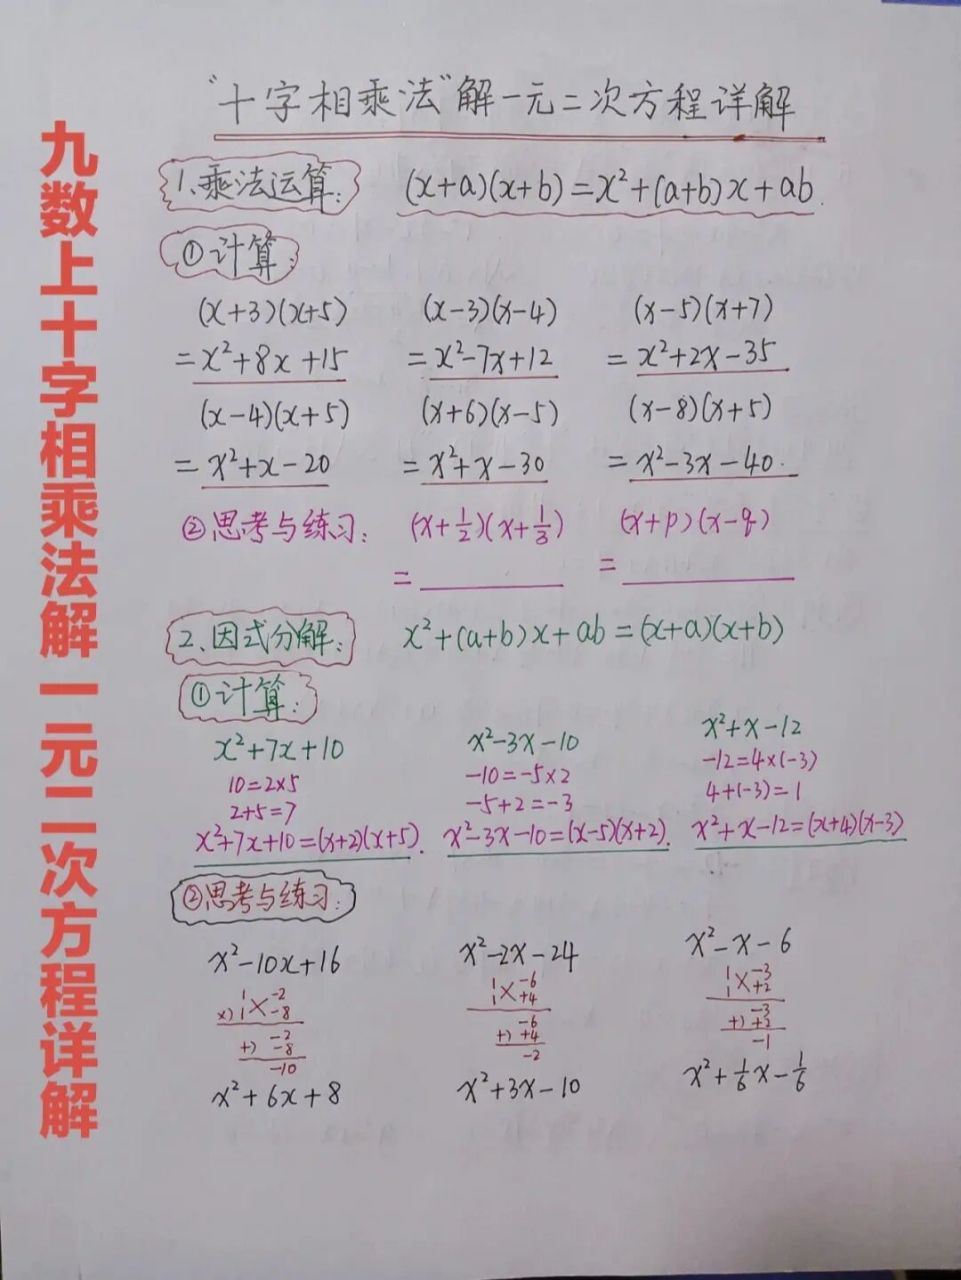 九数上十字相乘法解一元二次方程详解
“十字相乘法”解一元二次方程详解
1、乘法运算: (x+a)(x+b)=x²+(a+b)x+ab.
①计算:
(x+3)(x+5) (x-3)(x-4) (x-5)(x+7)
=x²+8x+15 =x²-7x+12 =x²+2x-35
(x-4)(x+5) (x+6)(x-5) (x-8)(x+5)
=x²+x-20 =x²+x-30 =x²-3x-40.
②思考与练习: (x+1/2)(x+1/3) (x+p)(x-q)
=________ =________
2、因式分解: x²+(a+b)x+ab=(x+a)(x+b)
①计算:
x²+7x+10 x²-3x-10 x²+x-12
10=2×5 -10=-5×2 -12=4×(-3)
2+5=7 -5+2=-3 4+(-3)=1
x²+7x+10=(x+2)(x+5). x²-3x-10=(x-5)(x+2). x²+x-12=(x+4)(x-3)
②思考与练习:
x²-10x+16 x²-2x-24 x²-x-6
1 -2 1 -6 1 -3
×) 1 × -8 1 × +4 1 × +2
-2 -6 -3
+) -8 +) +4 +) +2
-10 -2 -1
x²+6x+8 x²+3x-10 x²+1/6x-1/6